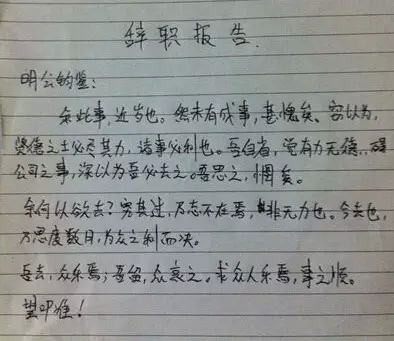 辞职报告
明公钧鉴:
余此事,近岁也。然未有成事,甚愧矣。窃以为,
贤德之士必尽其力,诸事必利也。吾自省,空有力无德,碍
公司之事,深以为吾必去之。吾思之,惆矣。
余何以欲去?究其过,乃志不在焉,非无力也。今去也,
乃思度数月,为众之利而决。
吾去,众乐焉;吾留,众哀之。求众人乐焉,事之顺。
望叩准!